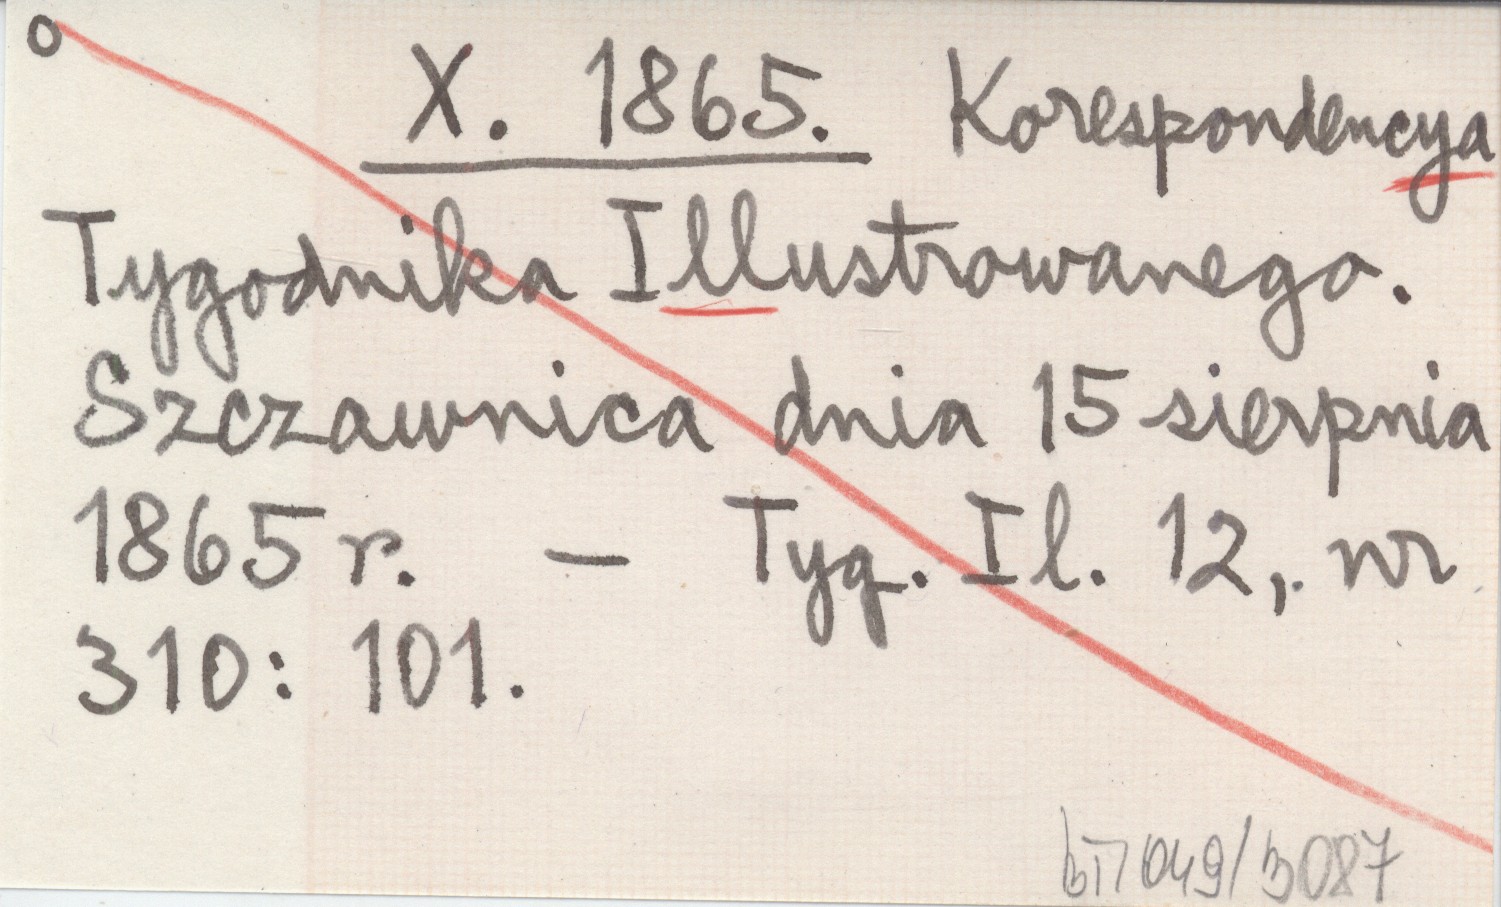 o
X. 1865. Korespondencya
Tygodnika Illustrowanego.
Szczawnica dnia 15 sierpnia
1865 r. – Tyg. Il. 12, nr
310: 101.